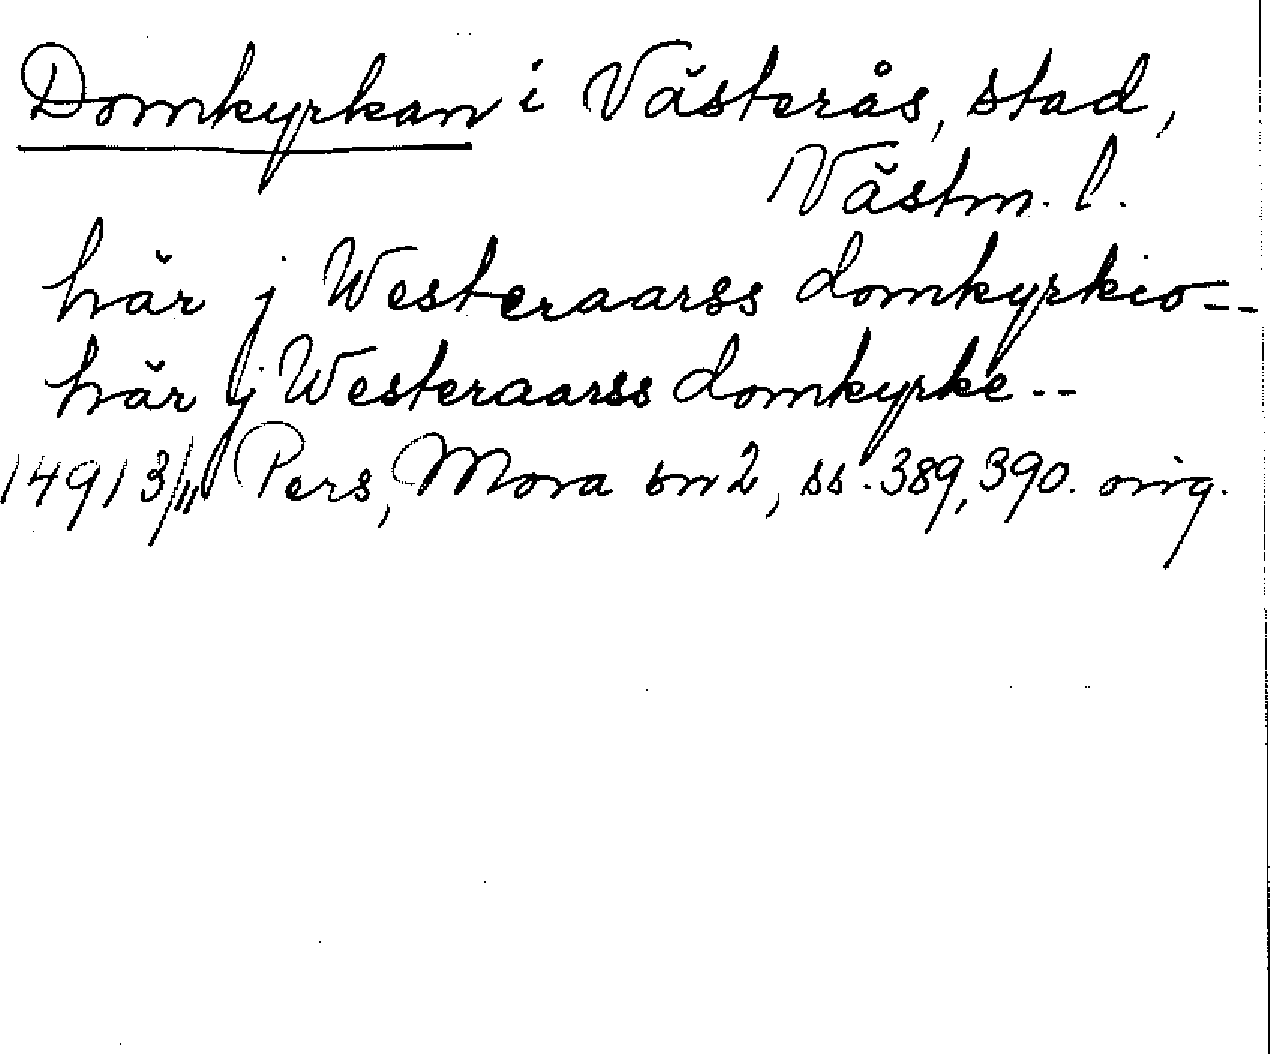 Domkyrkan i Västerås, stad,
Västm. l.
här j Westeraarss domkyrkio--
här j Westeraarss domkyrke --
1491 3/11 Pers, Mora bn 2, ss. 389, 390. orig.